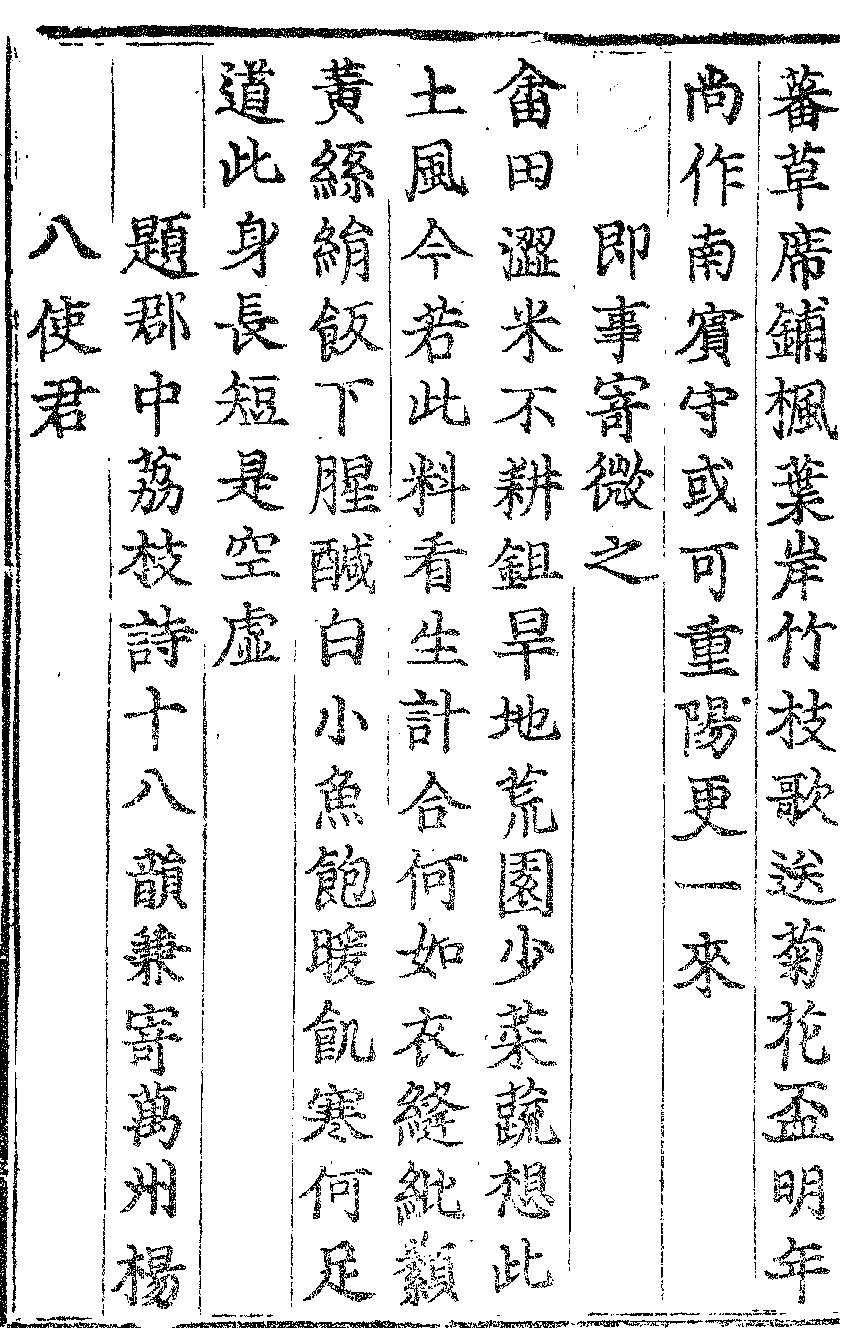 蕃草席鋪楓葉岸竹枝歌送菊花盃明年
尚作南賓守或可重陽更一來
即事寄微之
畬田澀米不耕鉏旱地荒園少菜蔬想此
土風今若此料看生計合何如衣縫紕纇
黃絲絹飯下腥醎白小魚飽暖飢寒何足
道此身長短是空虛
題郡中荔枝詩十八韻兼寄萬州楊
八使君